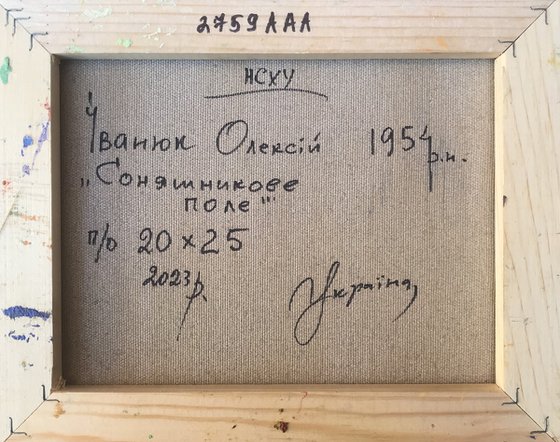 2759ААА
НСХУ
Іванюк Олексій 1954 р.н.
„Соняшникове
поле"
п/о 20×25
2023р. Україна